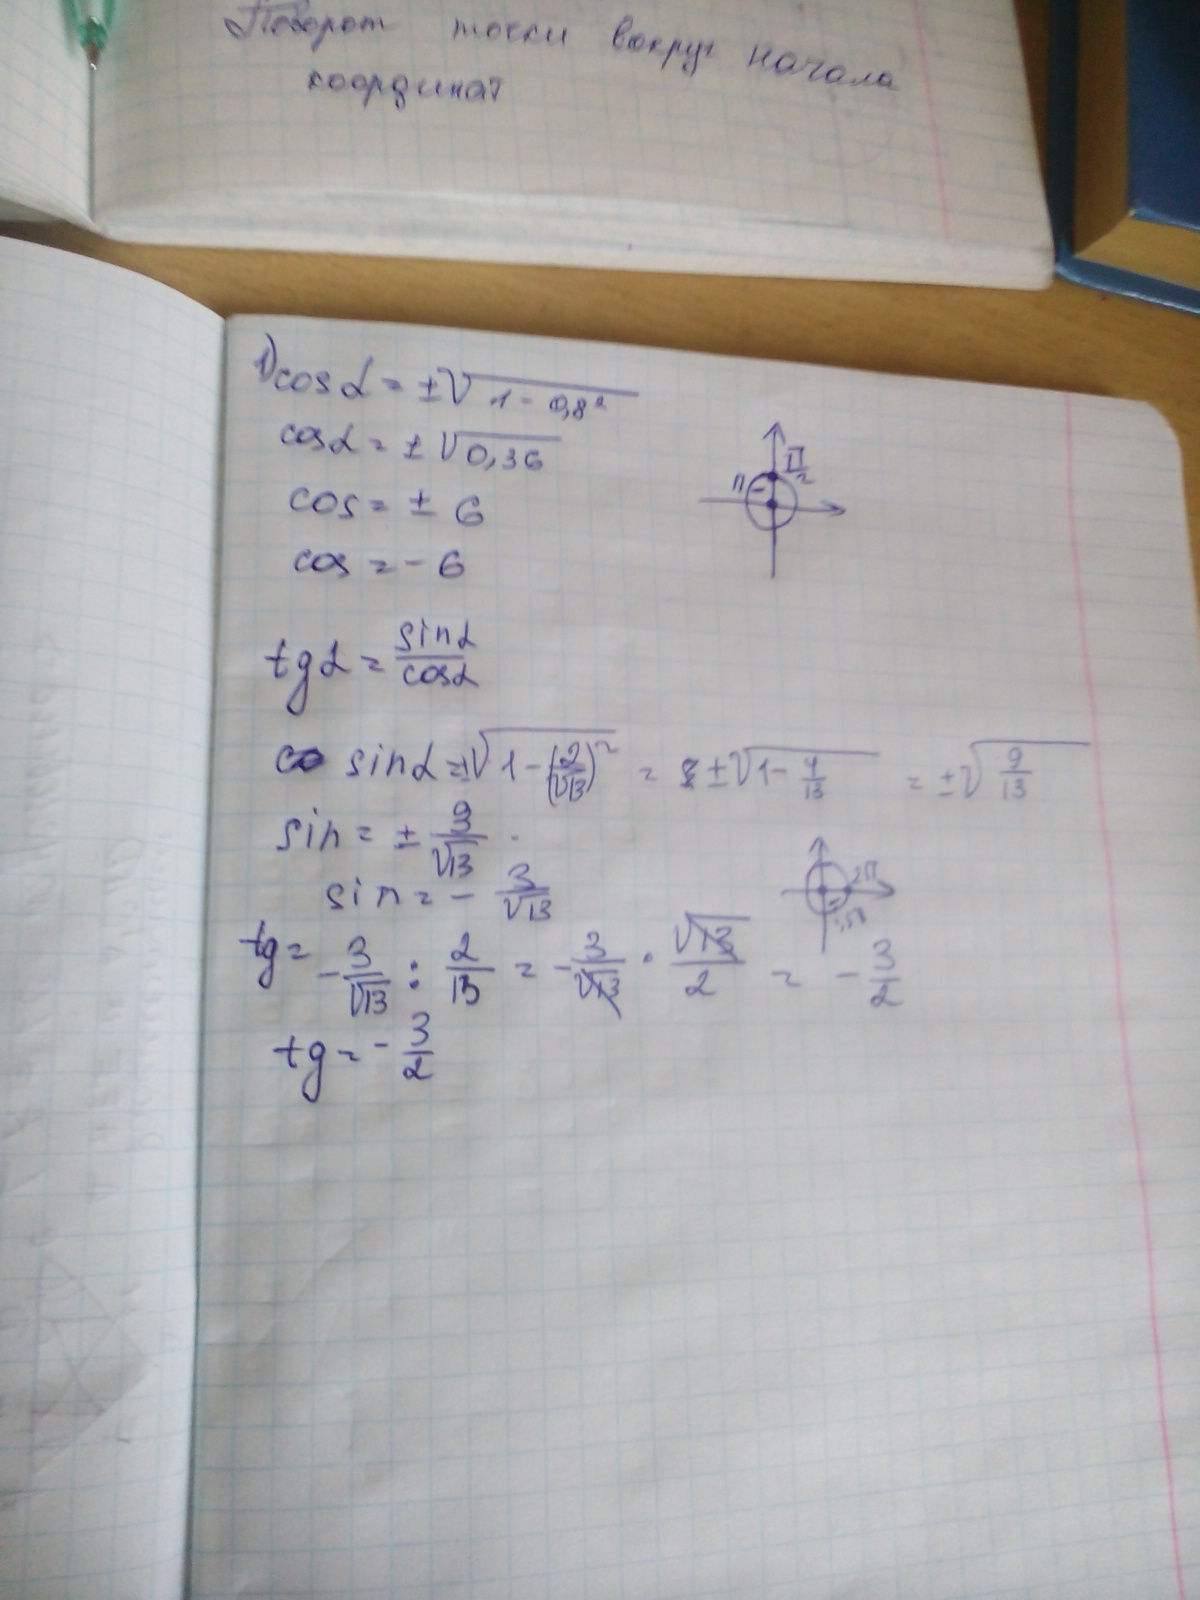 Поворот точки вокруг начала
координат
1) cos α = ±√1 - 0,8²
cos α = ± √0,36
cos = ± 6
cos = - 6
π/2
π
-
tg α = sin α / cos α
sin α = ±√1 - (2/√13)² = ±√1 - 4/13 = ±√9/13
sin = ± 9/√13
sin = - 3/√13
2π
tg = - 3/√13 : 2/13 = - 3/√13 · √13/2 = - 3/2
tg = - 3/2